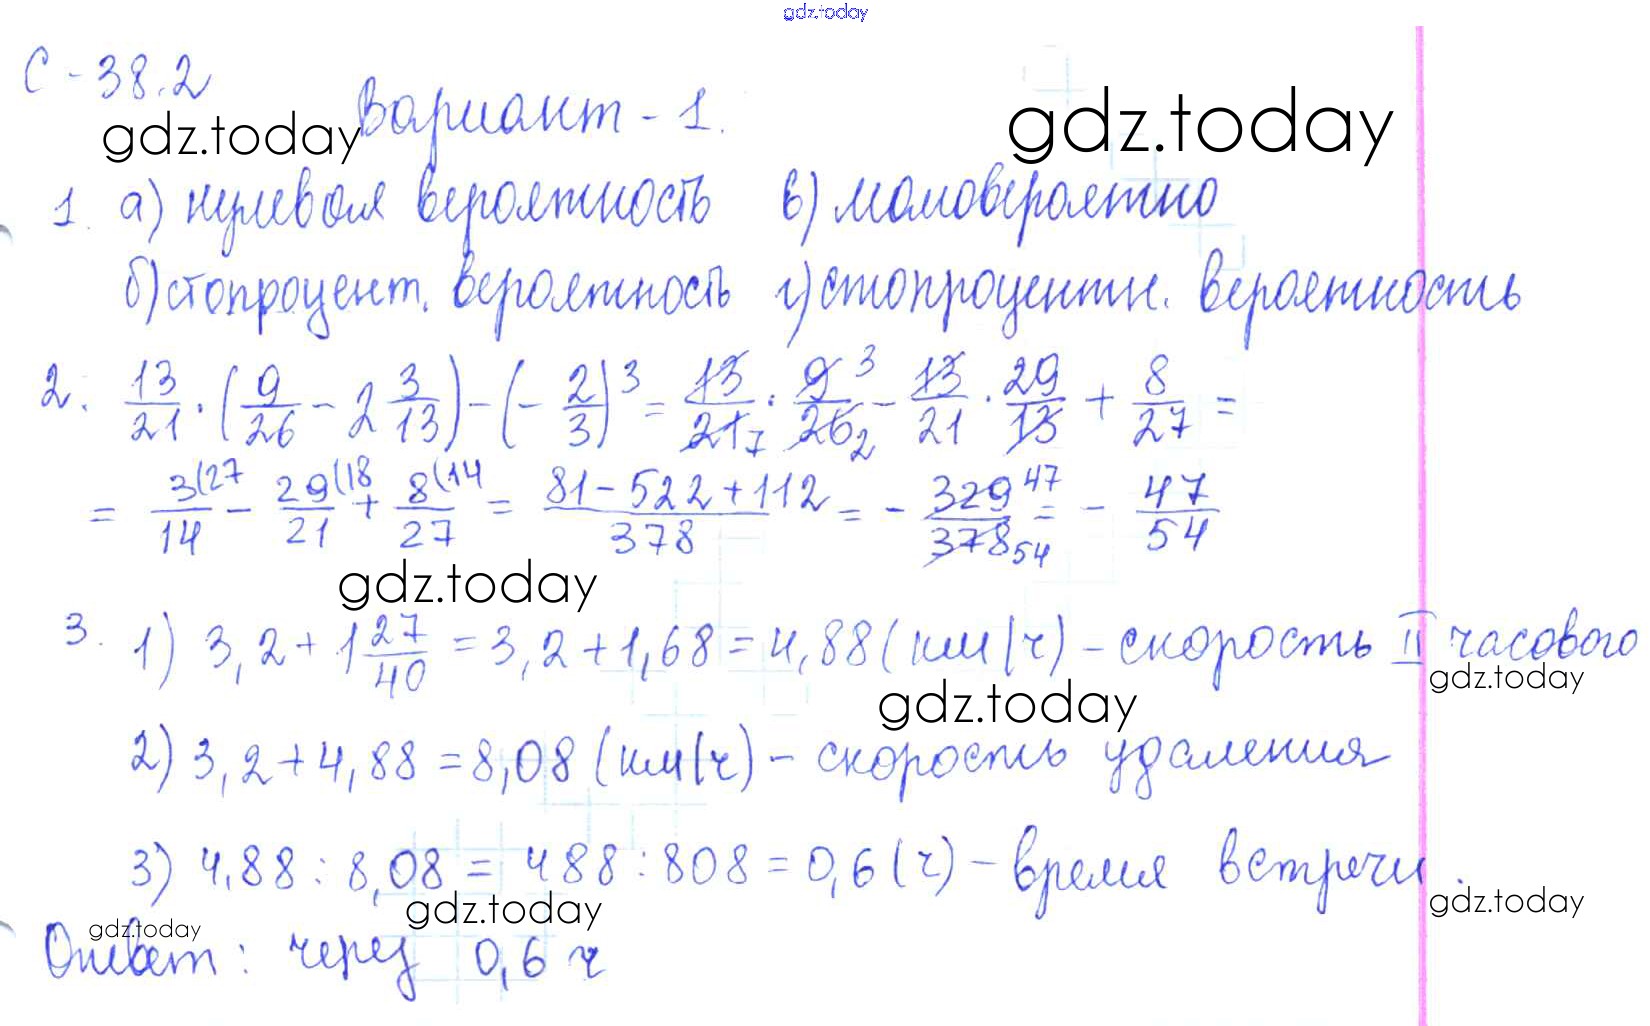 gdz.today
С-38.2
gdz.today Вариант - 1. gdz.today
1. а) нулевая вероятность в) маловероятно
б) стопроцент. вероятность г) стопроцентн. вероятность
2. 13/21 · (9/26 - 2 3/13) - (-2/3)^3 = 13/21 7 · 9 3/26 2 - 13/21 · 29/13 + 8/27 =
= 3(27/14 - 29(18/21 + 8(14/27 = 81-522+112/378 = - 329 47/378 54 = - 47/54
gdz.today
3. 1) 3,2 + 1 27/40 = 3,2 + 1,68 = 4,88 (км/ч) - скорость II часового
gdz.today gdz.today
2) 3,2 + 4,88 = 8,08 (км/ч) - скорость удаления
3) 4,88 : 8,08 = 488 : 808 = 0,6 (ч) - время встречи.
gdz.today gdz.today gdz.today
Ответ: через 0,6 ч